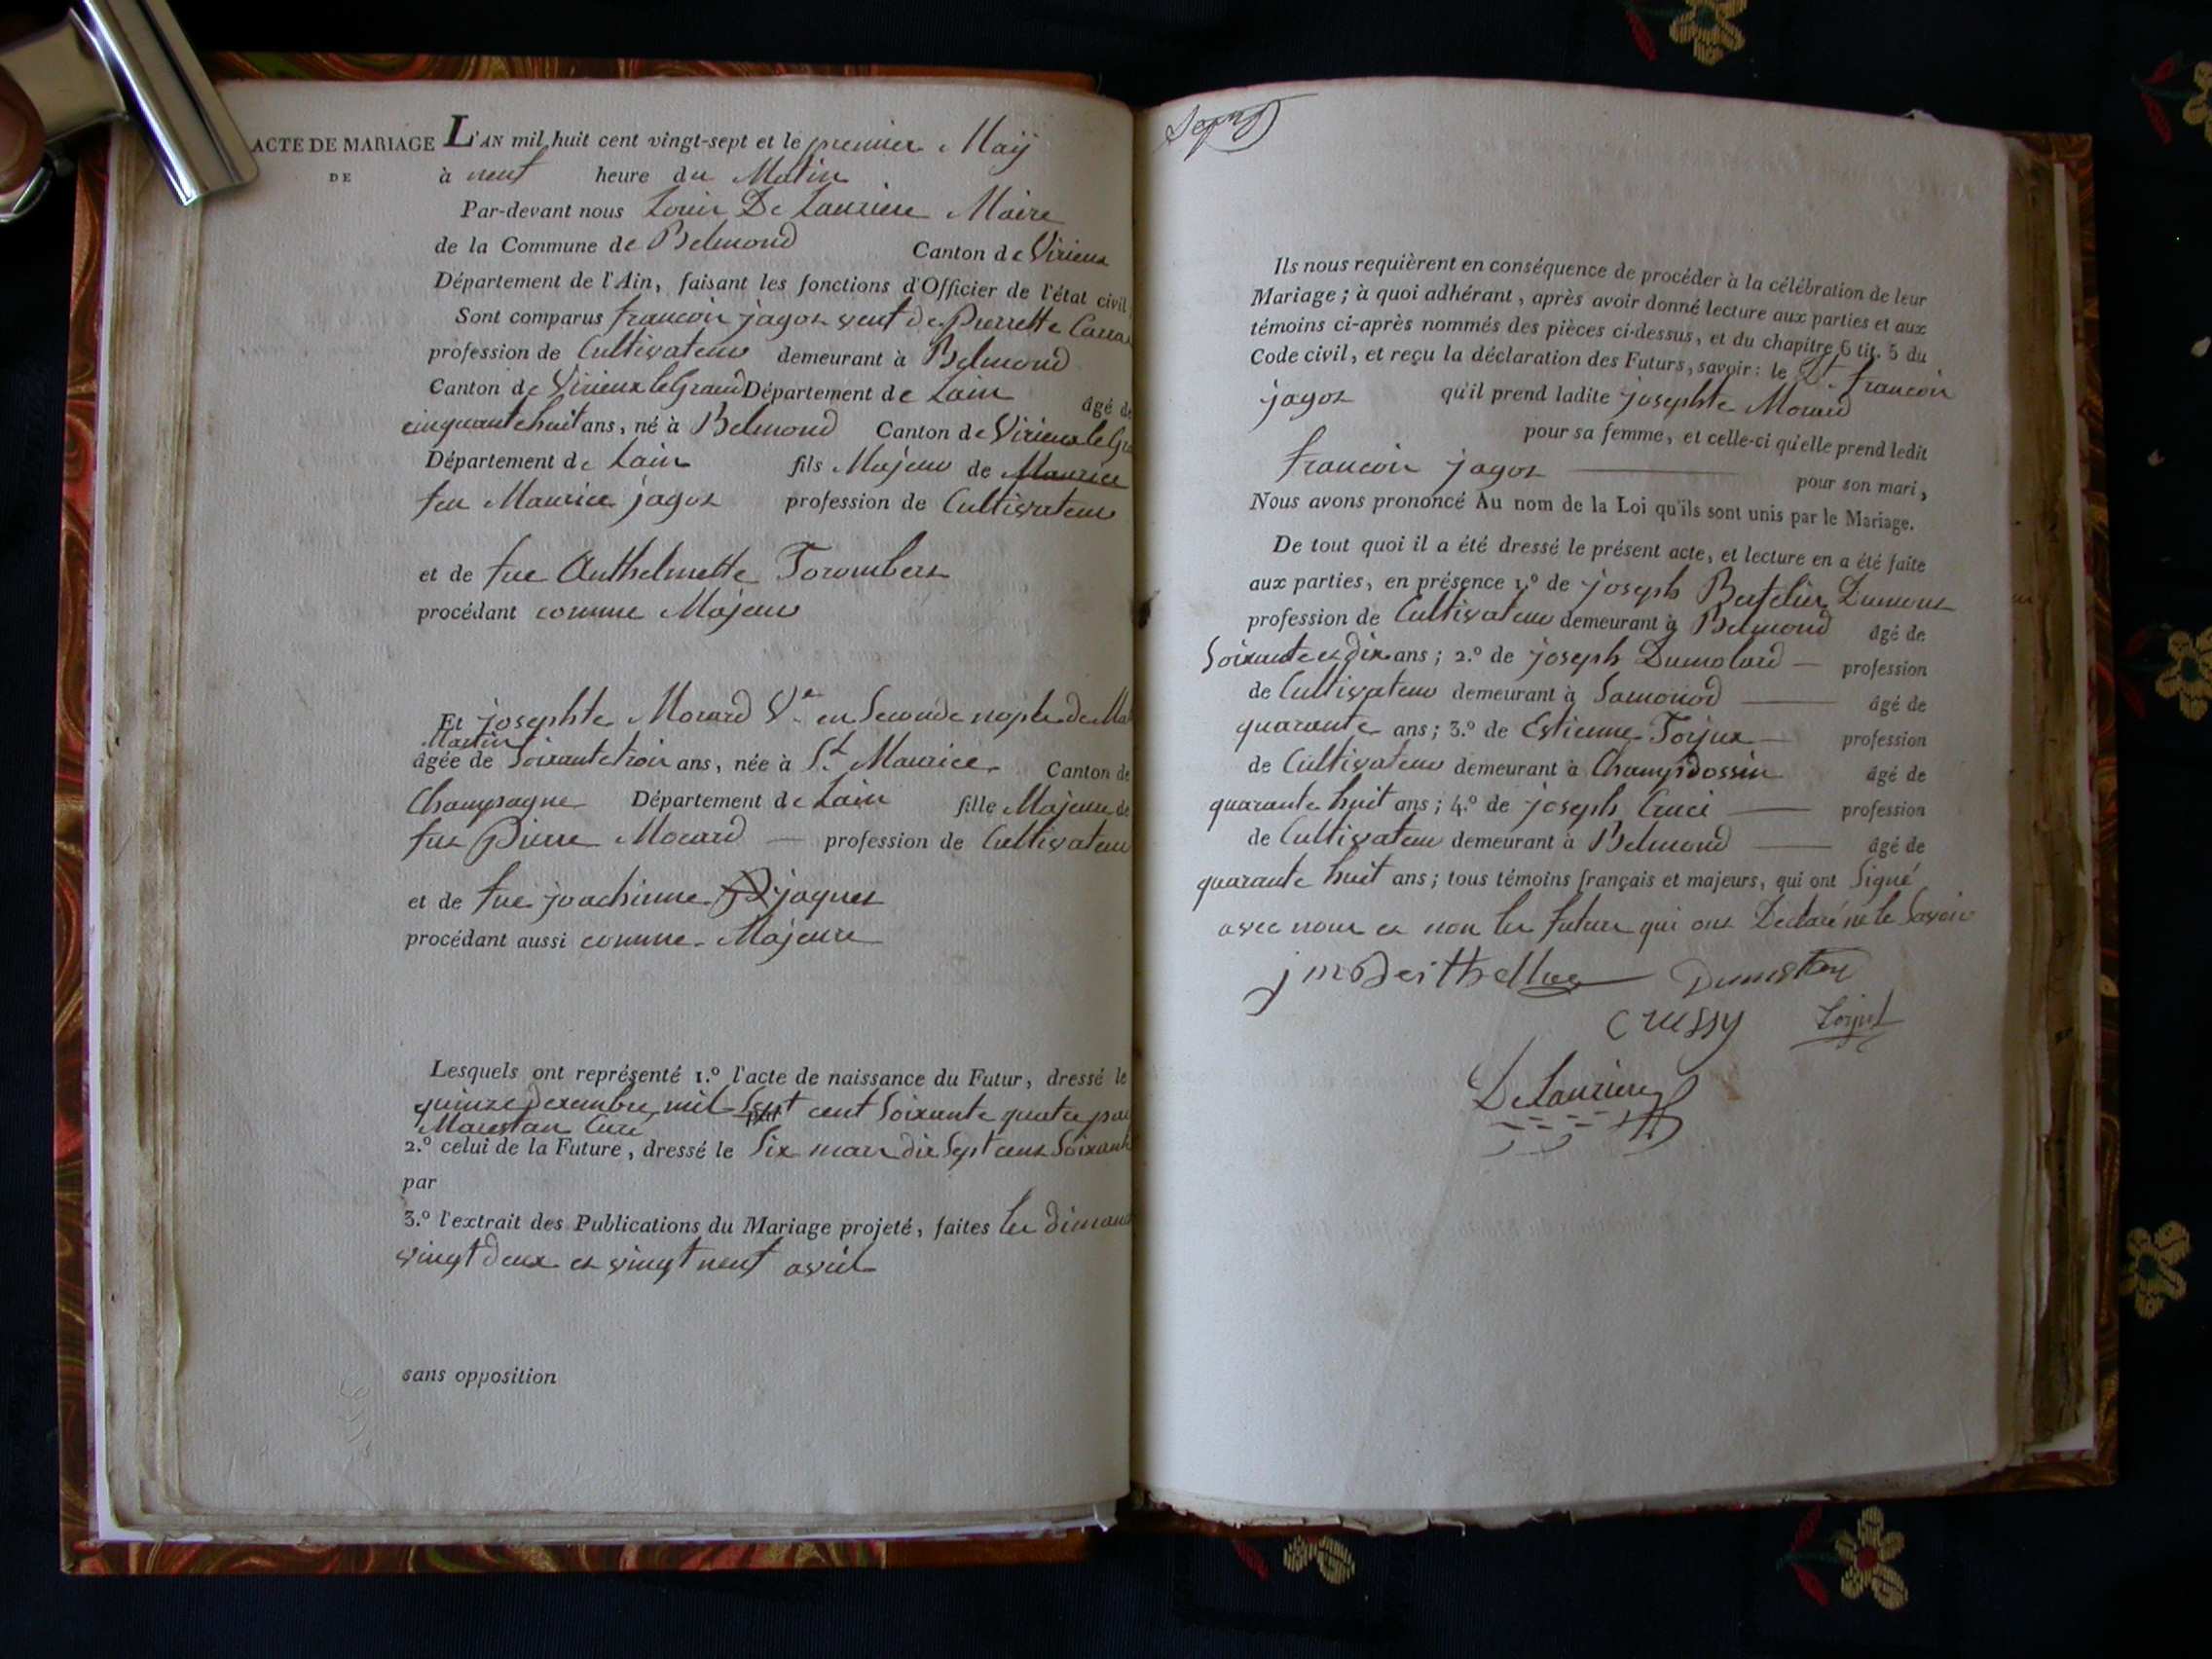 ACTE DE MARIAGE
DE
L'AN mil huit cent vingt-sept et le premier Maÿ
à neuf heure du Matin
Par-devant nous Louis De Lauriere Maire
de la Commune de Belmond Canton de Virieux
Département de l'Ain, faisant les fonctions d'Officier de l'état civil,
Sont comparus francois jagot veuf de Pierrette
profession de Cultivateur demeurant à Belmond
Canton de Virieux le Grand Département de Lain âgé de
cinquante huit ans, né à Belmond Canton de Virieux le
Département de Lain fils Majeur de Maurice
feu Maurice jagot profession de Cultivateur
et de fue Anthelmette Torombert
procédant comme Majeur
Et josephte Morard Ve en Seconde nopse de
Martin
âgée de Soixante trois ans, née à St Maurice Canton de
Champagne Département de Lain fille Majeure de
fut Pierre Morard — profession de Cultivateur
et de fue joachinne jaquet
procédant aussi comme Majeure
Lesquels ont représenté 1.º l'acte de naissance du Futur, dressé le
quinze Dexembre mil Sept cent Soixante quatre par
Curé
2.º celui de la Future, dressé le Six mars dix Sept cent Soixante
par
3.º l'extrait des Publications du Mariage projeté, faites les
vingt deux et vingt neuf avril
sans opposition
Ils nous requièrent en conséquence de procéder à la célébration de leur
Mariage; à quoi adhérant, après avoir donné lecture aux parties et aux
témoins ci-après nommés des pièces ci-dessus, et du chapitre 6 tit. 5 du
Code civil, et reçu la déclaration des Futurs, savoir: le Dt. francois
jagot qu'il prend ladite josephte Morard
pour sa femme, et celle-ci qu'elle prend ledit
francois jagot — pour son mari,
Nous avons prononcé Au nom de la Loi qu'ils sont unis par le Mariage.
De tout quoi il a été dressé le présent acte, et lecture en a été faite
aux parties, en présence 1.º de joseph Dumont
profession de Cultivateur demeurant à Belmond âgé de
Soixante et dix ans; 2.º de joseph Dumolard — profession
de Cultivateur demeurant à Samonod — âgé de
quarante ans; 3.º de Estienne Torjux — profession
de Cultivateur demeurant à Champdossin âgé de
quarante huit ans; 4.º de joseph Cruci — profession
de Cultivateur demeurant à Belmond — âgé de
quarante huit ans; tous témoins français et majeurs, qui ont Signé
avec nous et non les futurs qui ont Declaré ne le Savoir
crussy
De Lauriere